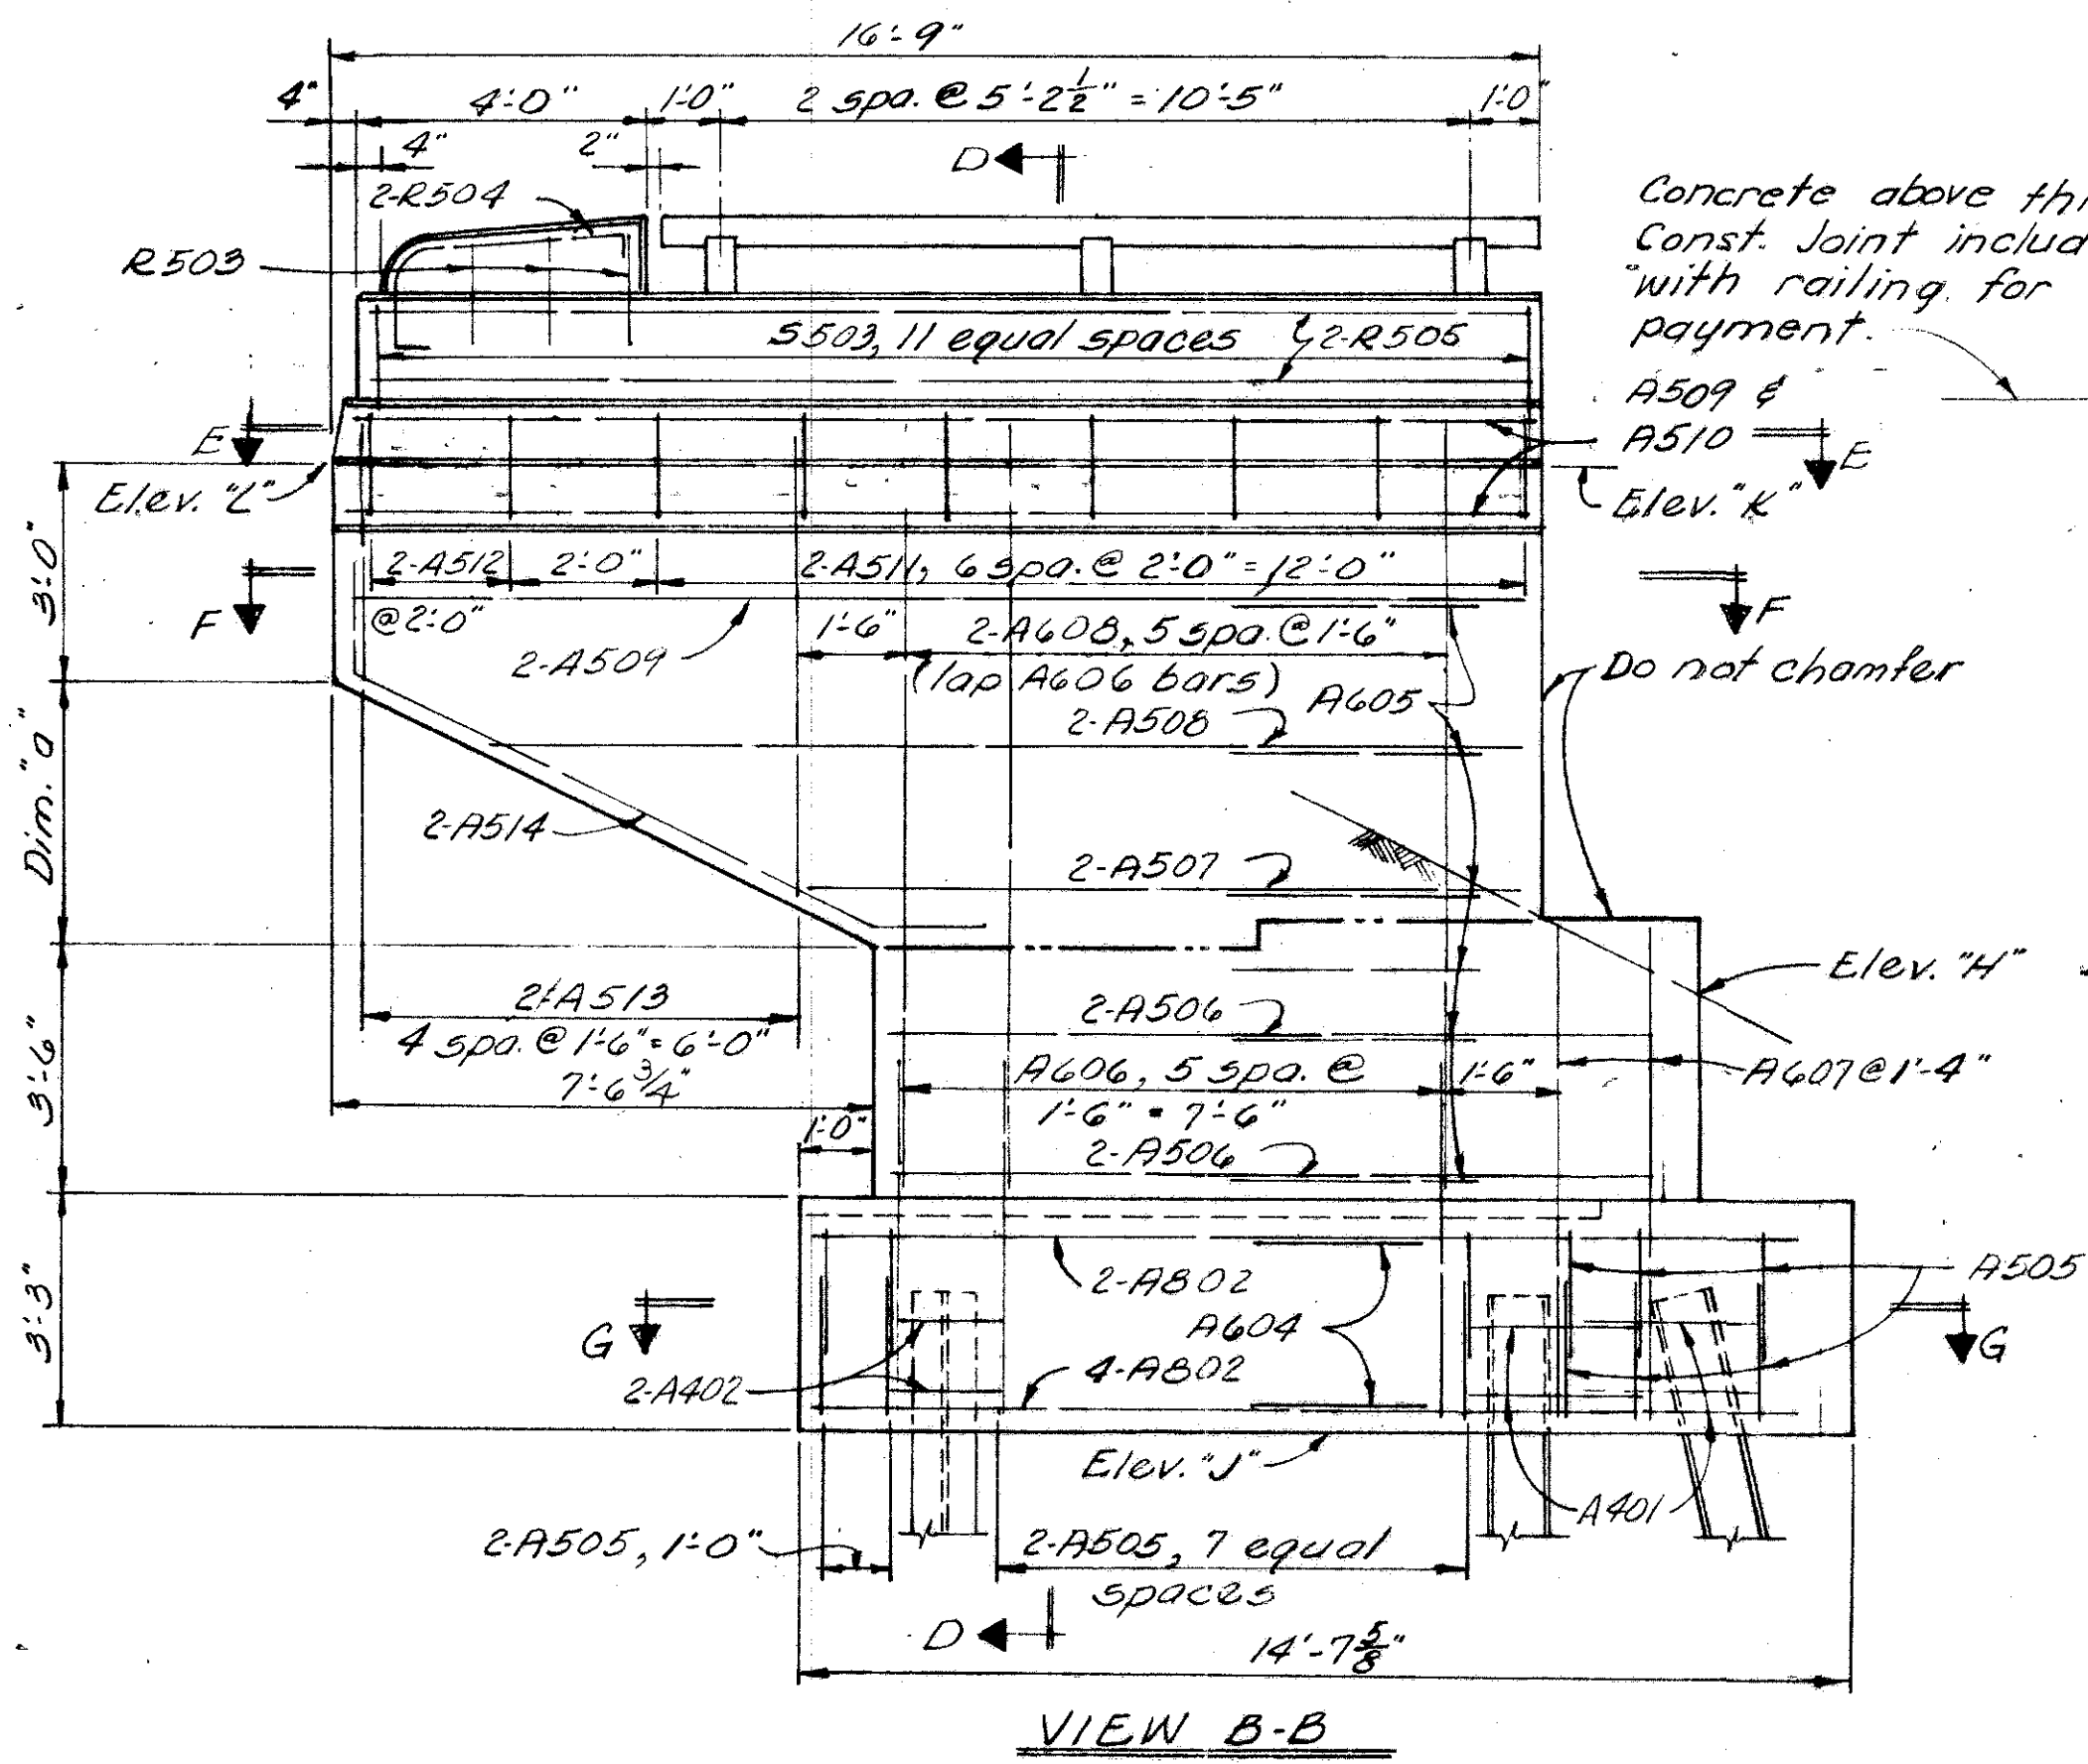 16'-9"
4"
4'-0"
1'-0"
2 spa. @ 5'-2 1/2" = 10'-5"
1'-0"
4"
2"
D
2-R504
R503
Concrete above thi
Const. Joint includ
with railing for
payment.
S503, 11 equal spaces
2-R505
A509 &
A510
E
E
Elev. "L"
Elev. "K"
3'-0"
2-A512
2'-0"
2-A511, 6 spa. @ 2'-0" = 12'-0"
F
F
@ 2'-0"
1'-6"
2-A608, 5 spa. @ 1'-6"
2-A509
(lap A606 bars)
Do not chamfer
A605
2-A508
Dim. "a"
2-A514
2-A507
Elev. "H"
2-A513
2-A506
4 spa. @ 1'-6" = 6'-0"
3'-6"
A606, 5 spa. @
1'-6"
A607 @ 1'-4"
7'-6 3/4"
1'-6" = 7'-6"
1'-0"
2-A506
2-A802
A505
3'-3"
G
A604
G
2-A402
4-A802
Elev. "J"
A401
2-A505, 1'-0"
2-A505, 7 equal
spaces
D
14'-7 5/8"
VIEW B-B